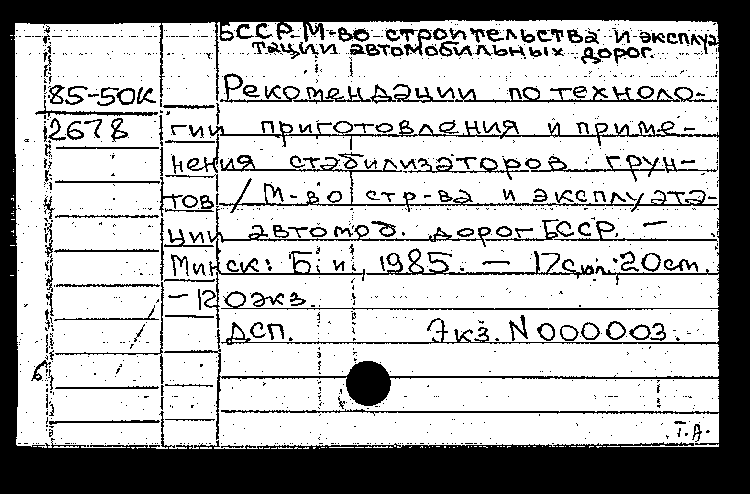 БССР. М-во строительства и эксплуа
тации автомобильных дорог.
85-50К
2678
Рекомендации по техноло-
гии приготовления и приме-
нения стабилизаторов грун-
тов / М-во стр-ва и эксплуата-
ции автомоб. дорог БССР. —
Минск: Б. и., 1985. — 17с., ил.; 20см.
— 120экз.
ДСП. Экз. N000003.
б
Т.А.